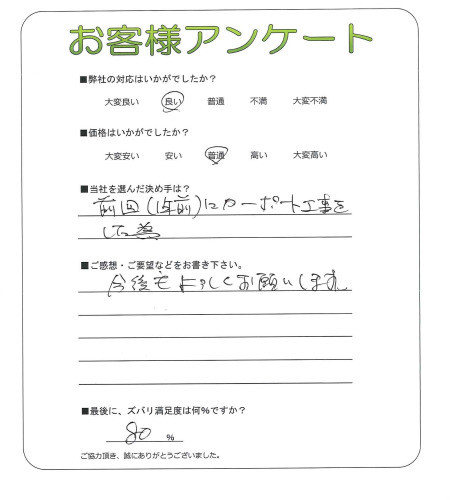 お客様アンケート
■弊社の対応はいかがでしたか?
大変良い 良い 普通 不満 大変不満
■価格はいかがでしたか?
大変安い 安い 普通 高い 大変高い
■当社を選んだ決め手は?
前回(1年前)にカーポート工事を
した為
■ご感想・ご要望などをお書き下さい。
今後もよろしくお願いします。
■最後に、ズバリ満足度は何%ですか?
80 %
ご協力頂き、誠にありがとうございました。